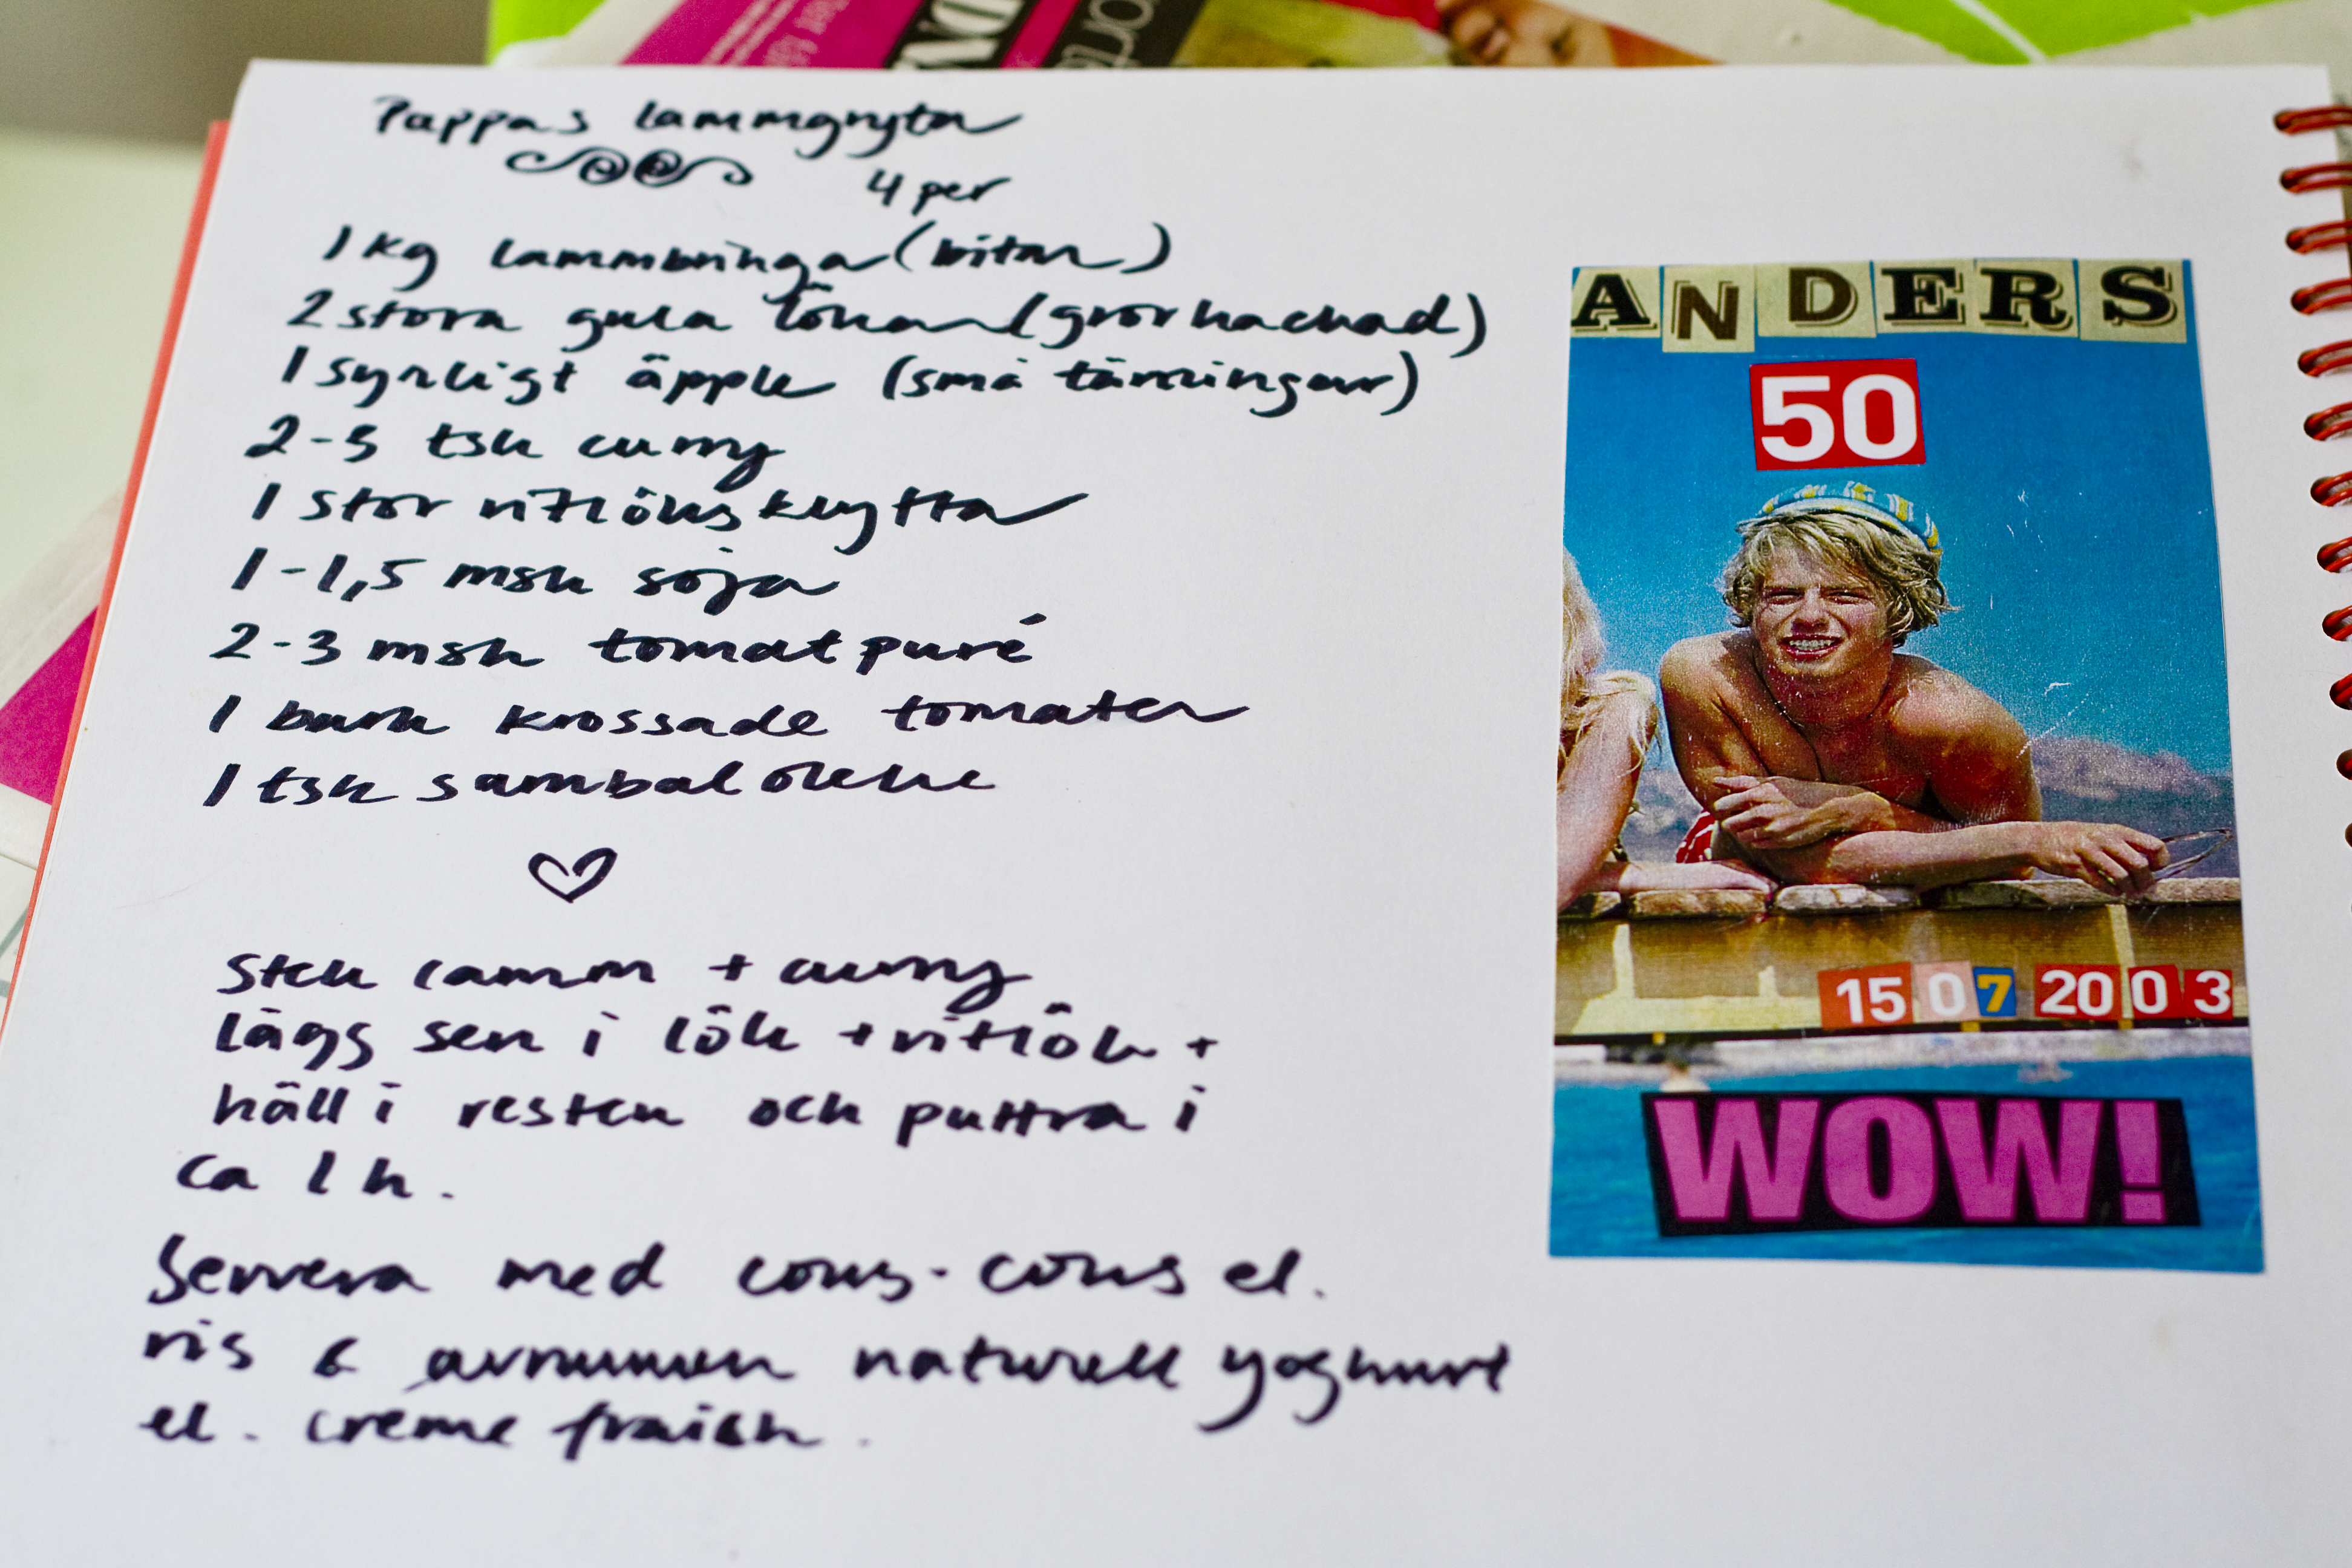 Pappas lammgryta
4 per
1 kg lammbringa (bitar)
2 stora gula lökar (grovhackad)
1 syrligt äpple (små tärningar)
2-3 tsk curry
1 stor vitlöksklyfta
1-1,5 msk soja
2-3 msk tomatpuré
1 burk krossade tomater
1 tsk sambal oleke
Stek lamm + curry
lägg sen i lök + vitlök +
häll i resten och puttra i
ca 1 h.
Servera med cous-cous el.
ris & avrunnen naturell yoghurt
el. creme fraish.
ANDERS
50
15 07 2003
WOW!